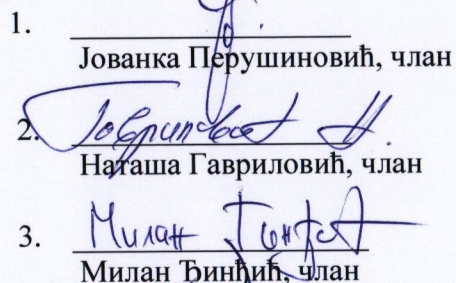 1.
Јованка Перушиновић, члан
2. Гавриловић Н.
Наташа Гавриловић, члан
3. Милан Ђинђић
Милан Ђинђић, члан